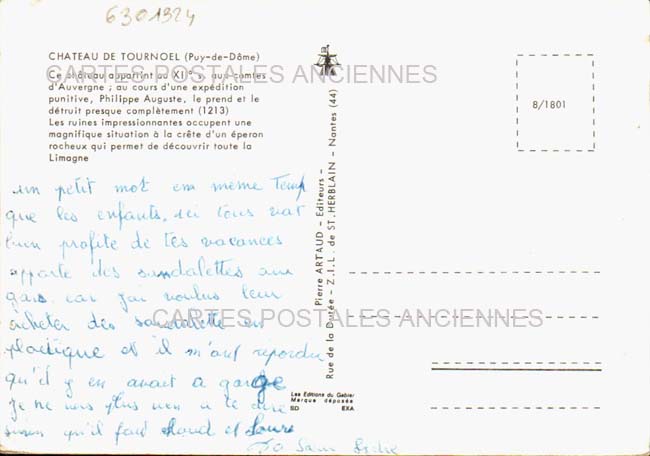 6301324
CHATEAU DE TOURNOEL (Puy-de-Dôme)
Ce château appartint au XIIe s. aux comtes
d'Auvergne ; au cours d'une expédition
punitive, Philippe Auguste, le prend et le
détruit presque complètement (1213)
Les ruines impressionnantes occupent une
magnifique situation à la crête d'un éperon
rocheux qui permet de découvrir toute la
Limagne
CARTES POSTALES ANCIENNES
un petit mot em même Temp
que les enfants, ici tous vat
bien profite de tes vacances
apporte des sandalettes aux
gars car j'ai voulus leur
acheter des sandalette en
plactique et il m'ont repondu
qu'il y en avait a garage
Je ne vois plus rien a te dire
sinon qu'il fait chaud et
CARTES POSTALES ANCIENNES
Pierre ARTAUD - Editeurs -
Rue de la Durée - Z.I.L. de ST. HERBLAIN - Nantes (44)
Les Editions du Gabier
Marque déposée
SD EXA
8/1801